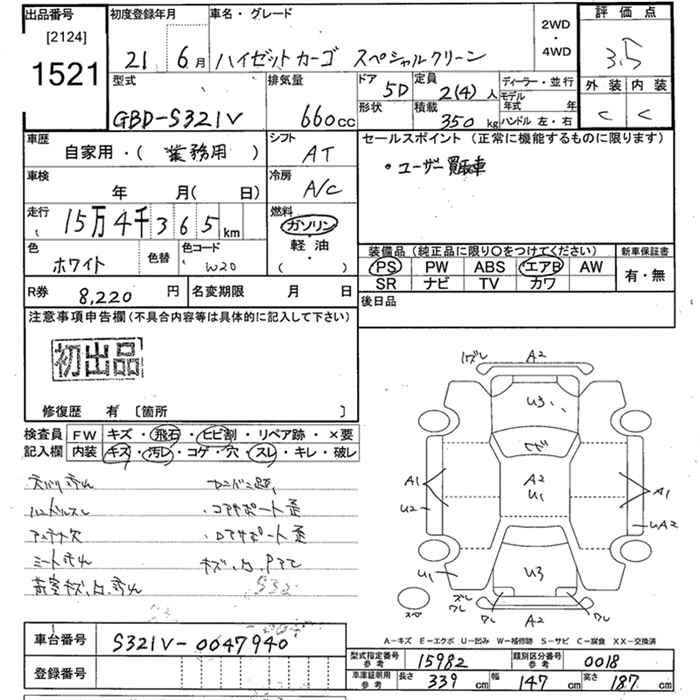 出品番号 [2124] 1521
初度登録年月 21 6月
車名・グレード ハイゼットカーゴ スペシャルクリーン
2WD ・ 4WD
評価点 3.5
型式 GBD-S321V
排気量 660cc
ドア 5D
定員 2(4)人
形状
積載 350kg
ディーラー・並行
モデル年式 年
ハンドル 左・右
外装 C
内装 C
車歴 自家用・( 業務用 )
シフト AT
セールスポイント (正常に機能するものに限ります)
・ユーザー買取車
車検 年 月( 日)
冷房 A/C
走行 15万4千365km
燃料 ガソリン・軽油 ( )
色 ホワイト
色替
色コード W20
装備品 (純正品に限り○をつけてください)
PS PW ABS エアB AW
SR ナビ TV カワ
新車保証書 有・無
R券 8,220円
名変期限 月 日
後日品
注意事項申告欄 (不具合内容等は具体的に記入して下さい)
初出品
修復歴 有 〔箇所 〕
検査員記入欄
FW キズ・飛石・ヒビ割・リペア跡・×要
内装 キズ・汚レ・コゲ・穴・スレ・キレ・破レ
ハンドルスレ
・コアサポート歪
アンテナ欠
・ロアサポート歪
A2
U3
A2
U1
A1
U2
A1
UA2
U1
U3
A2
A-キズ E-エクボ U-凹み W-補修跡 S-サビ C-腐食 XX-交換済
車台番号 S321V-0047940
登録番号
型式指定番号 参考 15982
類別区分番号 参考 0018
車庫証明用 参考 長さ 339cm 幅 147cm 高さ 187cm